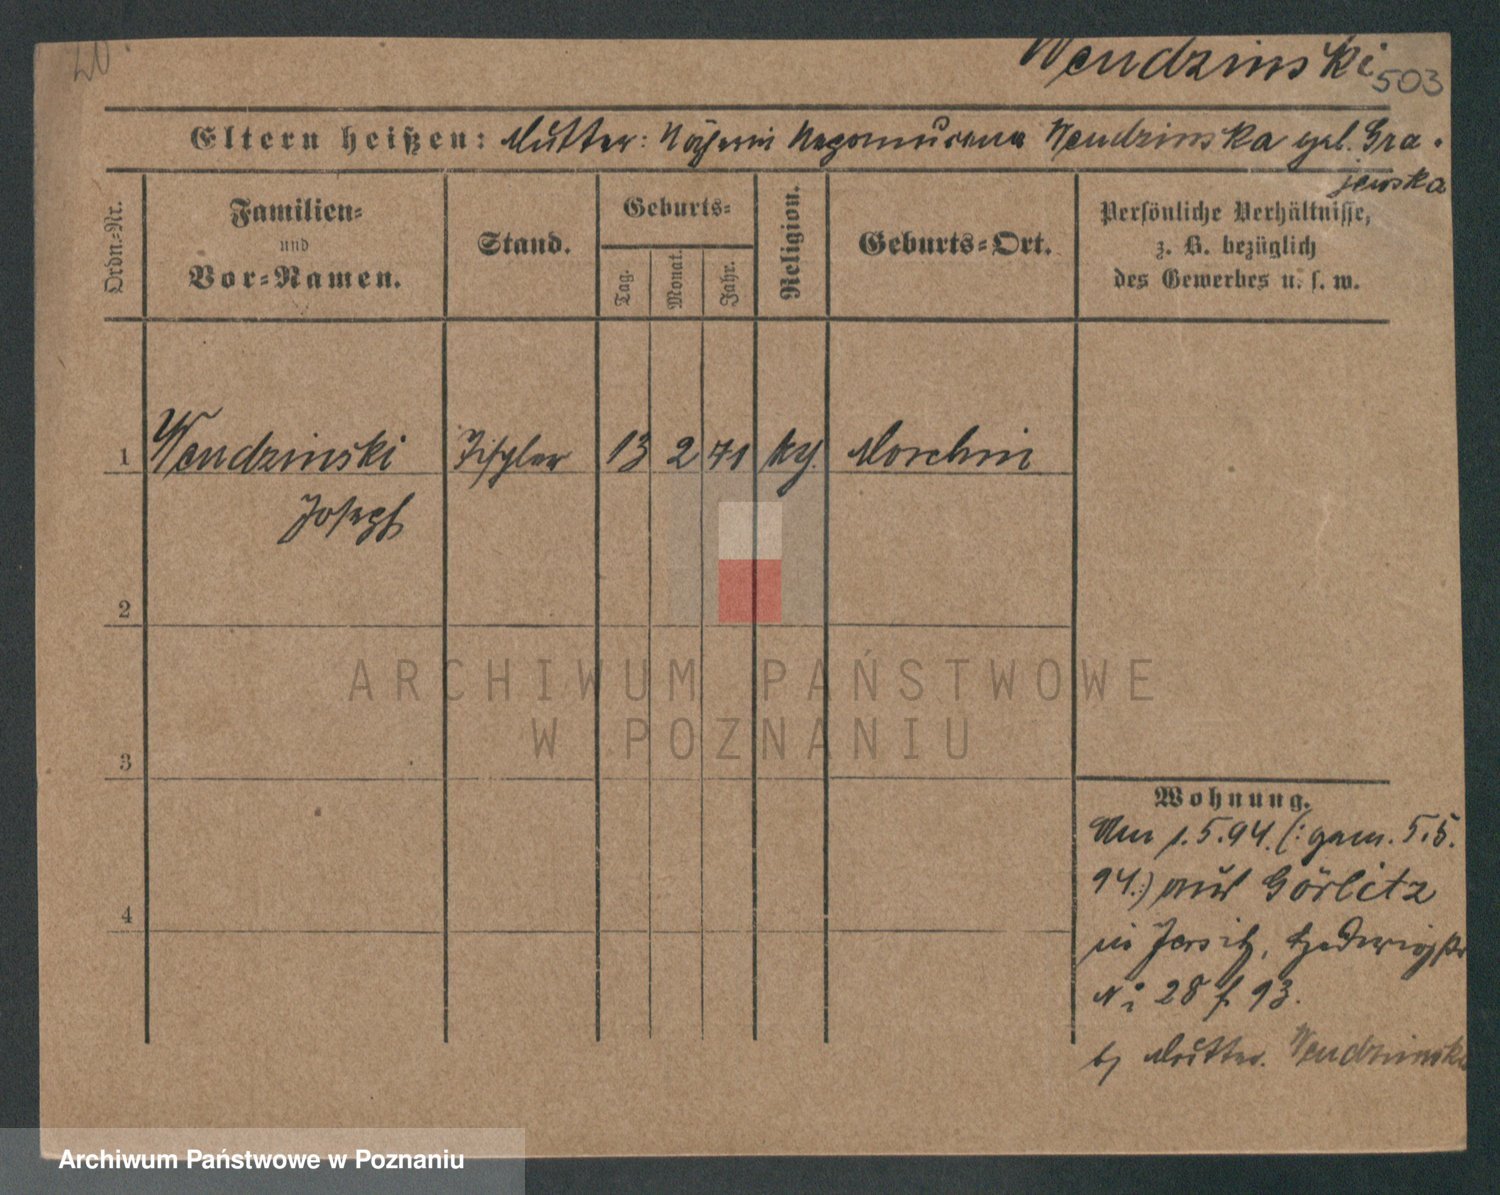 20
Wendzinski 503
Eltern heißen: Mutter: Näherin Nepomucena Wendzinska geb. Gra-
jewska
Ordn.-Nr.
Familien-
und
Vor-Namen.
Stand.
Geburts-
Tag.
Monat.
Jahr.
Religion.
Geburts-Ort.
Persönliche Verhältnisse,
z. B. bezüglich
des Gewerbes u. s. w.
1 Wendzinski Tischler 13 2 71 kth. Morchin
Joseph
2
3
4
Wohnung.
Am 1.5.94. (: gem. 5.5.
94.:) aus Görlitz
in Jersitz, Hedwigstr
No 28 f. 93.
b/ Mutter. Wendzinska
ARCHIWUM PAŃSTWOWE
W POZNANIU
Archiwum Państwowe w Poznaniu